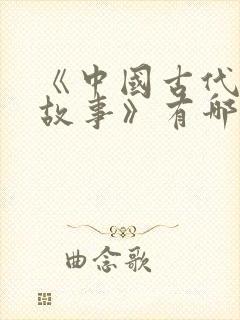 《中国古代
故事》有哪
曲念歌